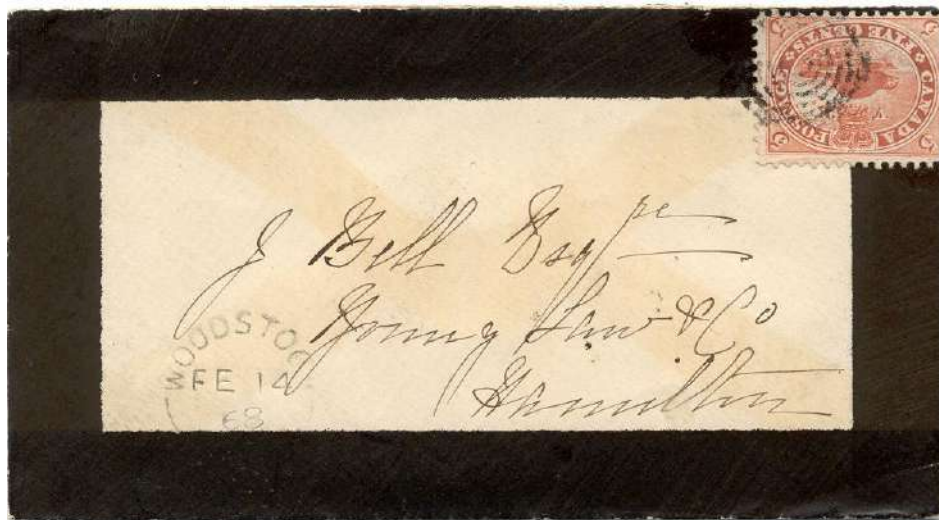 CANADA POSTAGE
FIVE CENTS
J Bell Esqre
Young Law & Co
Hamilton
WOODSTOC
FE 14
68